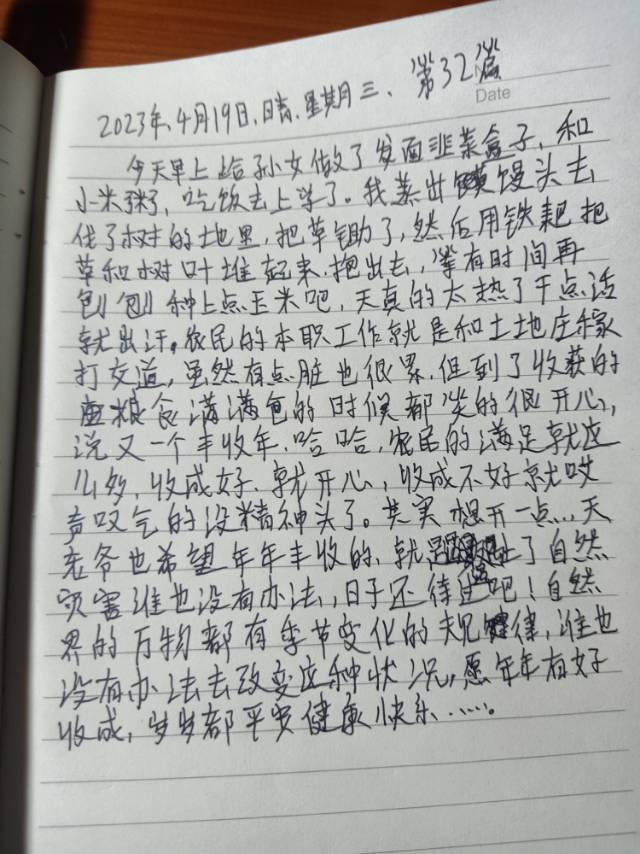 2023年4月19日.日晴.星期三、第32篇
Date
今天早上给孙女做了发面韭菜盒子,和
小米粥了,吃饭去上学了。我蒸出馍馒头去
伐了树的地里,把草锄了,然后用铁耙把
草和树叶堆起来.抱出去,等有时间再
刨刨种上点玉米吧,天真的太热了干点活
就出汗。农民的本职工作就是和土地庄稼
打交道,虽然有点脏也很累.但到了收获的
粮食满满仓的时候都笑的很开心,
说又一个丰收年.哈哈,农民的满足就这
么多,收成好.就开心,收成不好就哎
声叹气的没精神头了。其实想开一点...天
老爷也希望年年丰收的,就是了自然
灾害谁也没有办法,日子还得过吧!自然
界的万物都有季节变化的规律,谁也
没有办法去改变这种状况,愿年年有好
收成,岁岁都平安健康快乐......